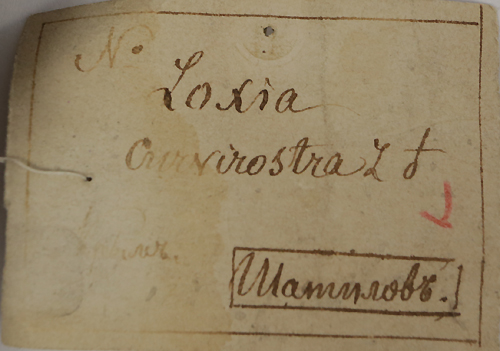 No.
Loxia
Curvirostra L ♂
Шатиловъ.